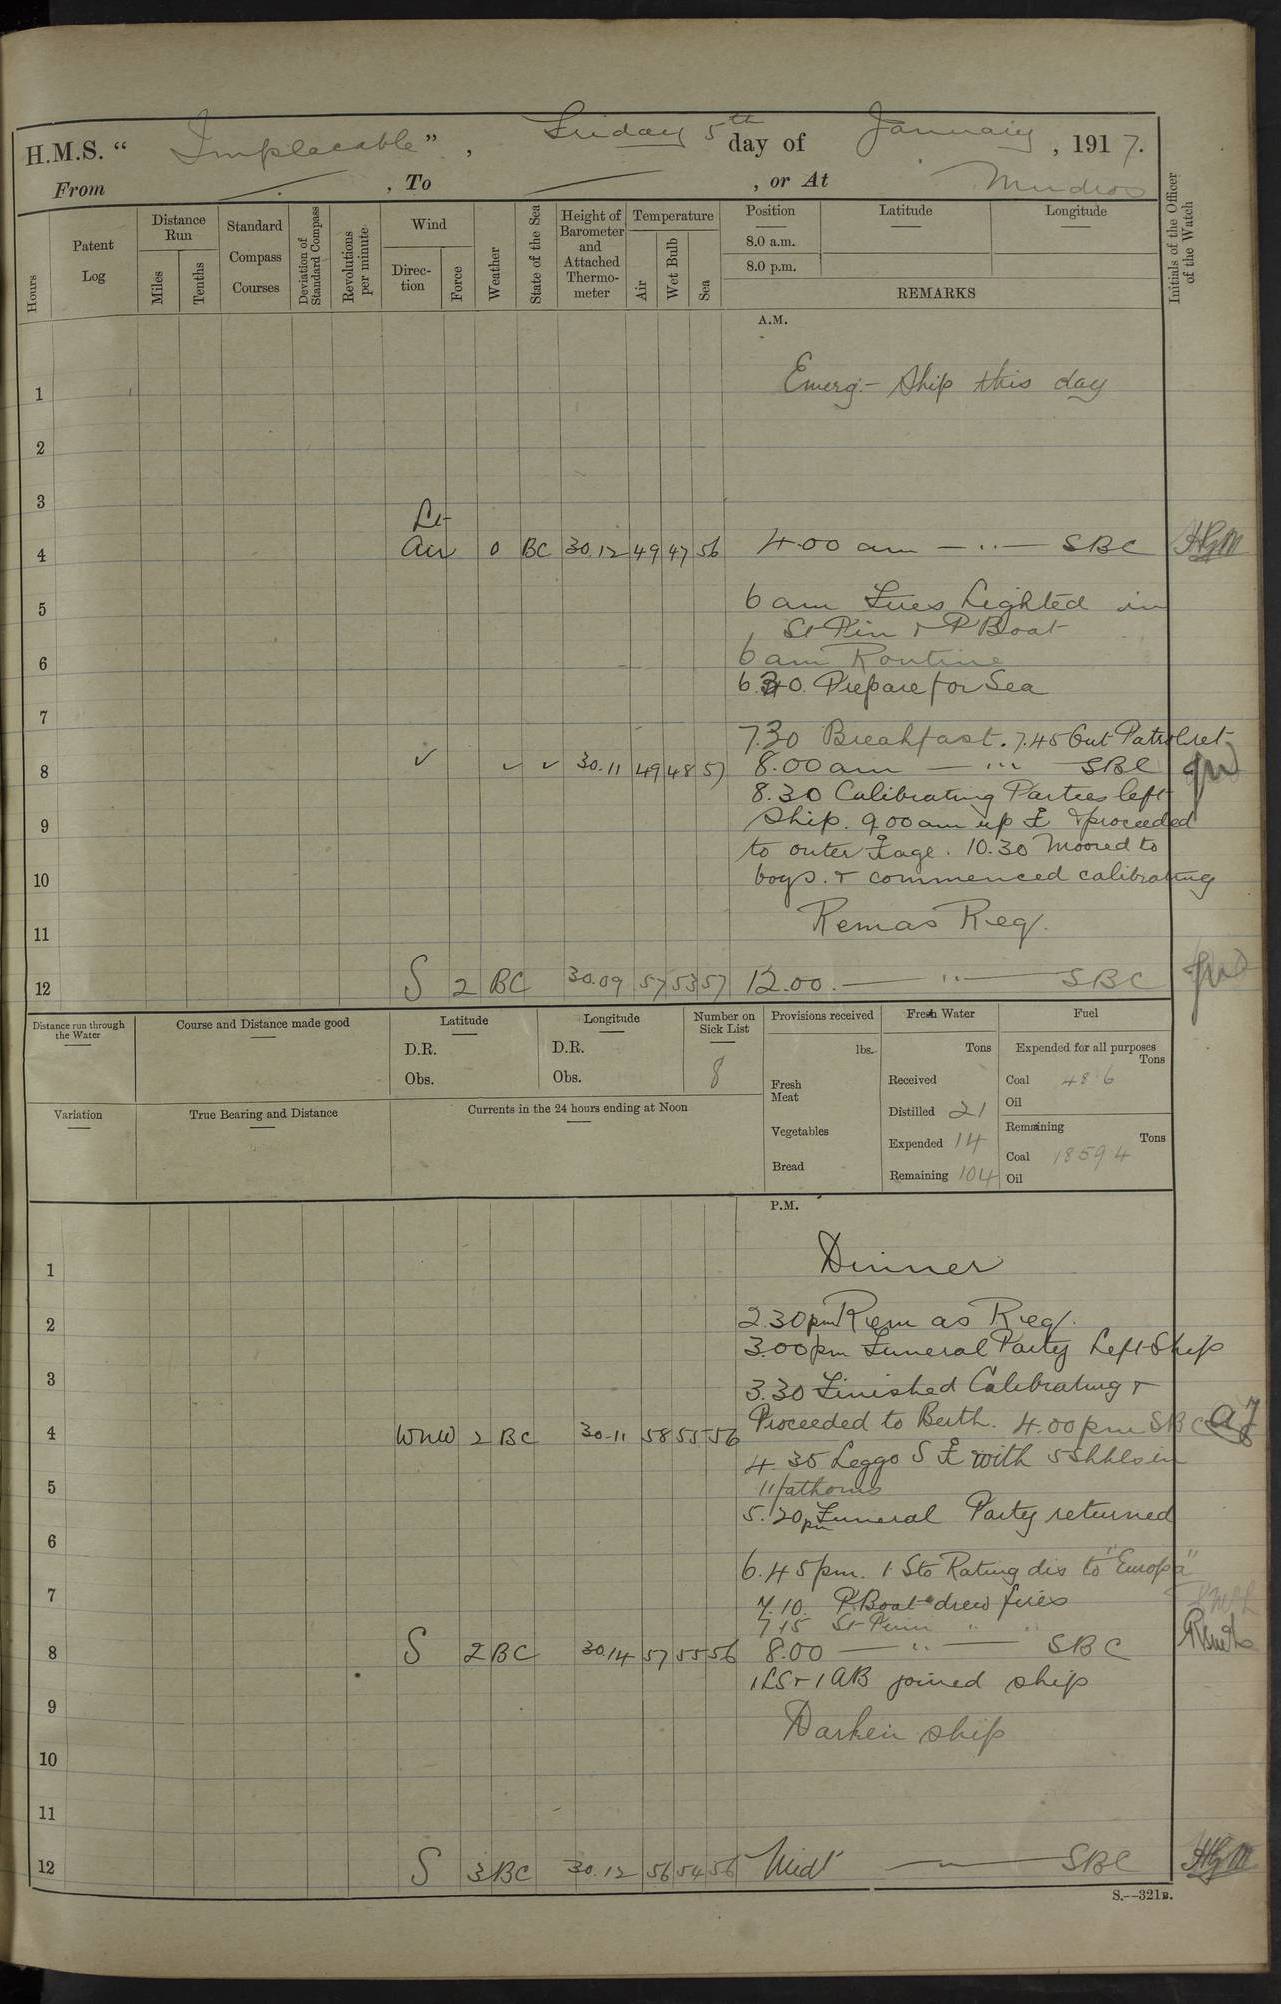 H.M.S. “ Implacable ” , Friday 5th day of January , 1917.
From , To , or At Mudros
Hours
Patent Log
Distance Run
Miles
Tenths
Standard Compass Courses
Deviation of Standard Compass
Revolutions per minute
Wind
Direction
Force
Weather
State of the Sea
Height of Barometer and Attached Thermometer
Temperature
Air
Wet Bulb
Sea
Position
8.0 a.m.
8.0 p.m.
Latitude
Longitude
REMARKS
Initials of the Officer of the Watch
A.M.
1 Emerg:- Ship this day
2
3
Lt
4 Air 0 BC 30.12 49 47 56 4.00 am — " — SBC HGM
5 6 am Fires Lighted in
St Pin & P Boat
6 6 am Routine
6.30. Prepare for Sea
7 7.30 Breakfast. 7.45 Out Patrol net
8 ✓ ✓ ✓ 30.11 49 48 57 8.00 am — " — SBC
8.30 Calibrating Parties left
9 Ship. 9.00 am up & proceeded
to outer age. 10.30 Moored to
10 boys. & commenced calibrating
11 Rem as Req.
12 S 2 BC 30.09 57 53 57 12.00. — " — SBC
Distance run through the Water
Course and Distance made good
Latitude
D.R.
Obs.
Longitude
D.R.
Obs.
Number on Sick List
8
Provisions received
lbs.
Fresh Meat
Vegetables
Bread
Fresh Water
Tons
Received
Distilled 21
Expended 14
Remaining 104
Fuel
Expended for all purposes
Tons
Coal 48 6
Oil
Remaining
Tons
Coal 1859 4
Oil
Variation
True Bearing and Distance
Currents in the 24 hours ending at Noon
P.M.
1 Dinner
2 2.30 pm Rem as Req.
3.00 pm Funeral Party Left Ship
3 3.30 Finished Calibrating &
Proceeded to Berth. 4.00 pm SBC
4 WNW 2 BC 30.11 58 55 56
4.35 Leggo S with 5 Shkls in
5 11 fathoms
5.20 pm Funeral Party returned
6
6.45 pm. 1 Sto Rating dis to "Europa"
7 7.10. P. Boat drew fires
7.15 St Pinn " "
8 S 2 BC 30.14 57 55 56 8.00 — " — SBC
1 LS & 1 AB joined ship
9 Darken ship
10
11
12 S 3 BC 30.12 56 54 56 Midt — SBC HGM
S.—321B.